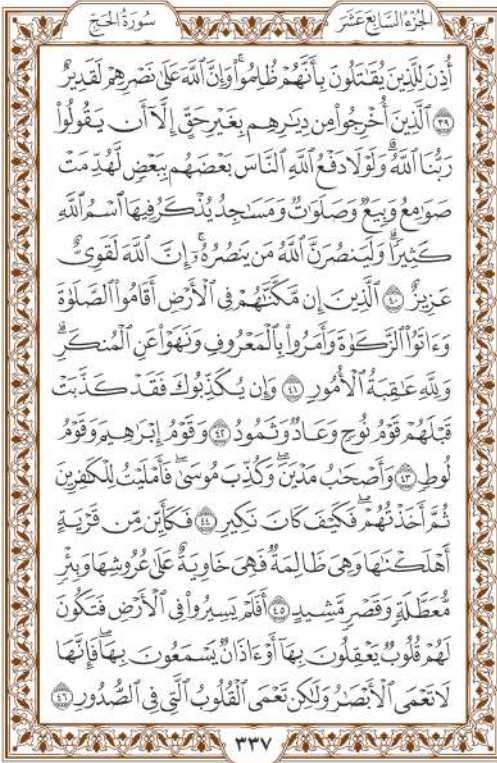 الجُزْءُ السَّابِعَ عَشَرَ
سُورَةُ الحَجِّ
أُذِنَ لِلَّذِينَ يُقَٰتَلُونَ بِأَنَّهُمْ ظُلِمُواْۚ وَإِنَّ ٱللَّهَ عَلَىٰ نَصْرِهِمْ لَقَدِيرٌ
٣٩ ٱلَّذِينَ أُخْرِجُواْ مِن دِيَٰرِهِم بِغَيْرِ حَقٍّ إِلَّآ أَن يَقُولُواْ
رَبُّنَا ٱللَّهُۗ وَلَوْلَا دَفْعُ ٱللَّهِ ٱلنَّاسَ بَعْضَهُم بِبَعْضٍ لَّهُدِّمَتْ
صَوَٰمِعُ وَبِيَعٌ وَصَلَوَٰتٌ وَمَسَٰجِدُ يُذْكَرُ فِيهَا ٱسْمُ ٱللَّهِ
كَثِيرًاۗ وَلَيَنصُرَنَّ ٱللَّهُ مَن يَنصُرُهُۥٓۚ إِنَّ ٱللَّهَ لَقَوِيٌّ
عَزِيزٌ ٤٠ ٱلَّذِينَ إِن مَّكَّنَّٰهُمْ فِي ٱلْأَرْضِ أَقَامُواْ ٱلصَّلَوٰةَ
وَءَاتَوُاْ ٱلزَّكَوٰةَ وَأَمَرُواْ بِٱلْمَعْرُوفِ وَنَهَوْاْ عَنِ ٱلْمُنكَرِۗ
وَلِلَّهِ عَٰقِبَةُ ٱلْأُمُورِ ٤١ وَإِن يُكَذِّبُوكَ فَقَدْ كَذَّبَتْ
قَبْلَهُمْ قَوْمُ نُوحٍ وَعَادٌ وَثَمُودُ ٤٢ وَقَوْمُ إِبْرَٰهِيمَ وَقَوْمُ
لُوطٍ ٤٣ وَأَصْحَٰبُ مَدْيَنَۖ وَكُذِّبَ مُوسَىٰۖ فَأَمْلَيْتُ لِلْكَٰفِرِينَ
ثُمَّ أَخَذْتُهُمْۖ فَكَيْفَ كَانَ نَكِيرِ ٤٤ فَكَأَيِّن مِّن قَرْيَةٍ
أَهْلَكْنَٰهَا وَهِيَ ظَالِمَةٌ فَهِيَ خَاوِيَةٌ عَلَىٰ عُرُوشِهَا وَبِئْرٍ
مُّعَطَّلَةٍ وَقَصْرٍ مَّشِيدٍ ٤٥ أَفَلَمْ يَسِيرُواْ فِي ٱلْأَرْضِ فَتَكُونَ
لَهُمْ قُلُوبٌ يَعْقِلُونَ بِهَآ أَوْ ءَاذَانٌ يَسْمَعُونَ بِهَاۖ فَإِنَّهَا
لَا تَعْمَى ٱلْأَبْصَٰرُ وَلَٰكِن تَعْمَى ٱلْقُلُوبُ ٱلَّتِي فِي ٱلصُّدُورِ ٤٦
٣٣٧